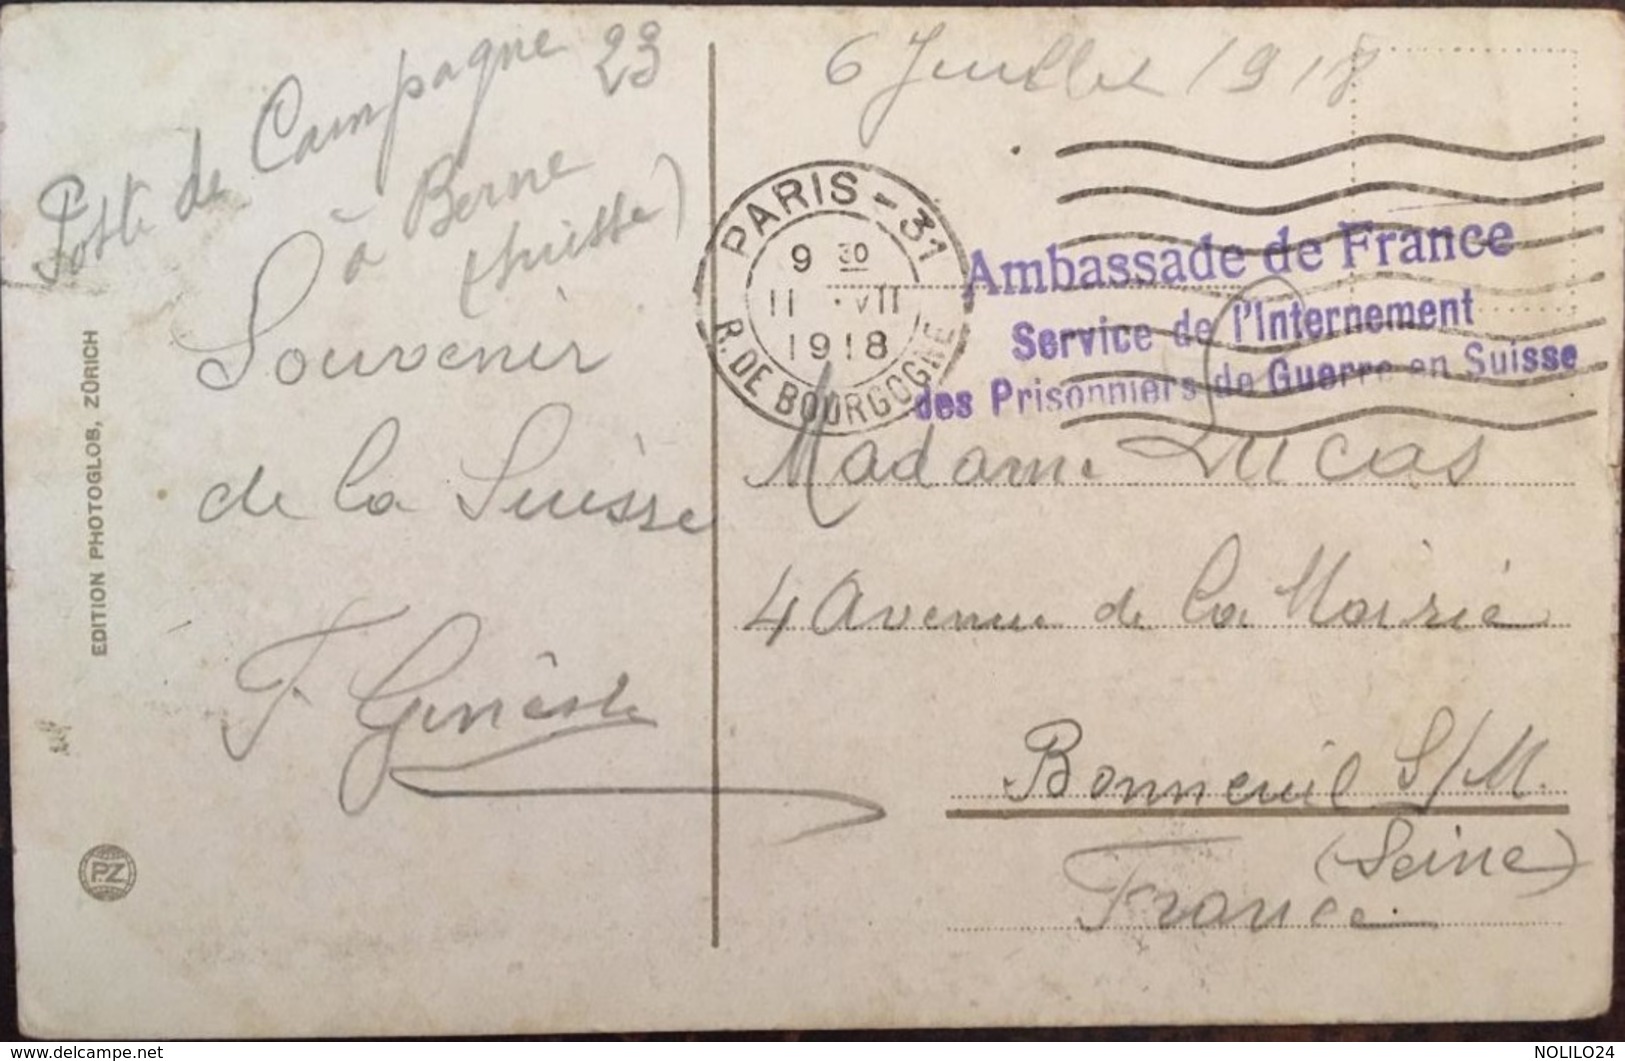 Poste de Campagne 23
à Berne
(Suisse)
Souvenir
de la Suisse
F Genèste
EDITION PHOTOGLOB, ZÜRICH
PZ
6 Juillet 1918
PARIS - 31
9 30
11 · VII
1918
R. DE BOURGOGNE
Ambassade de France
Service de l'Internement
des Prisonniers de Guerre en Suisse
Madame Lucas
4 Avenue de la Mairie
Bonneuil S/M.
(Seine)
France.
www.delcampe.net
NOLILO24